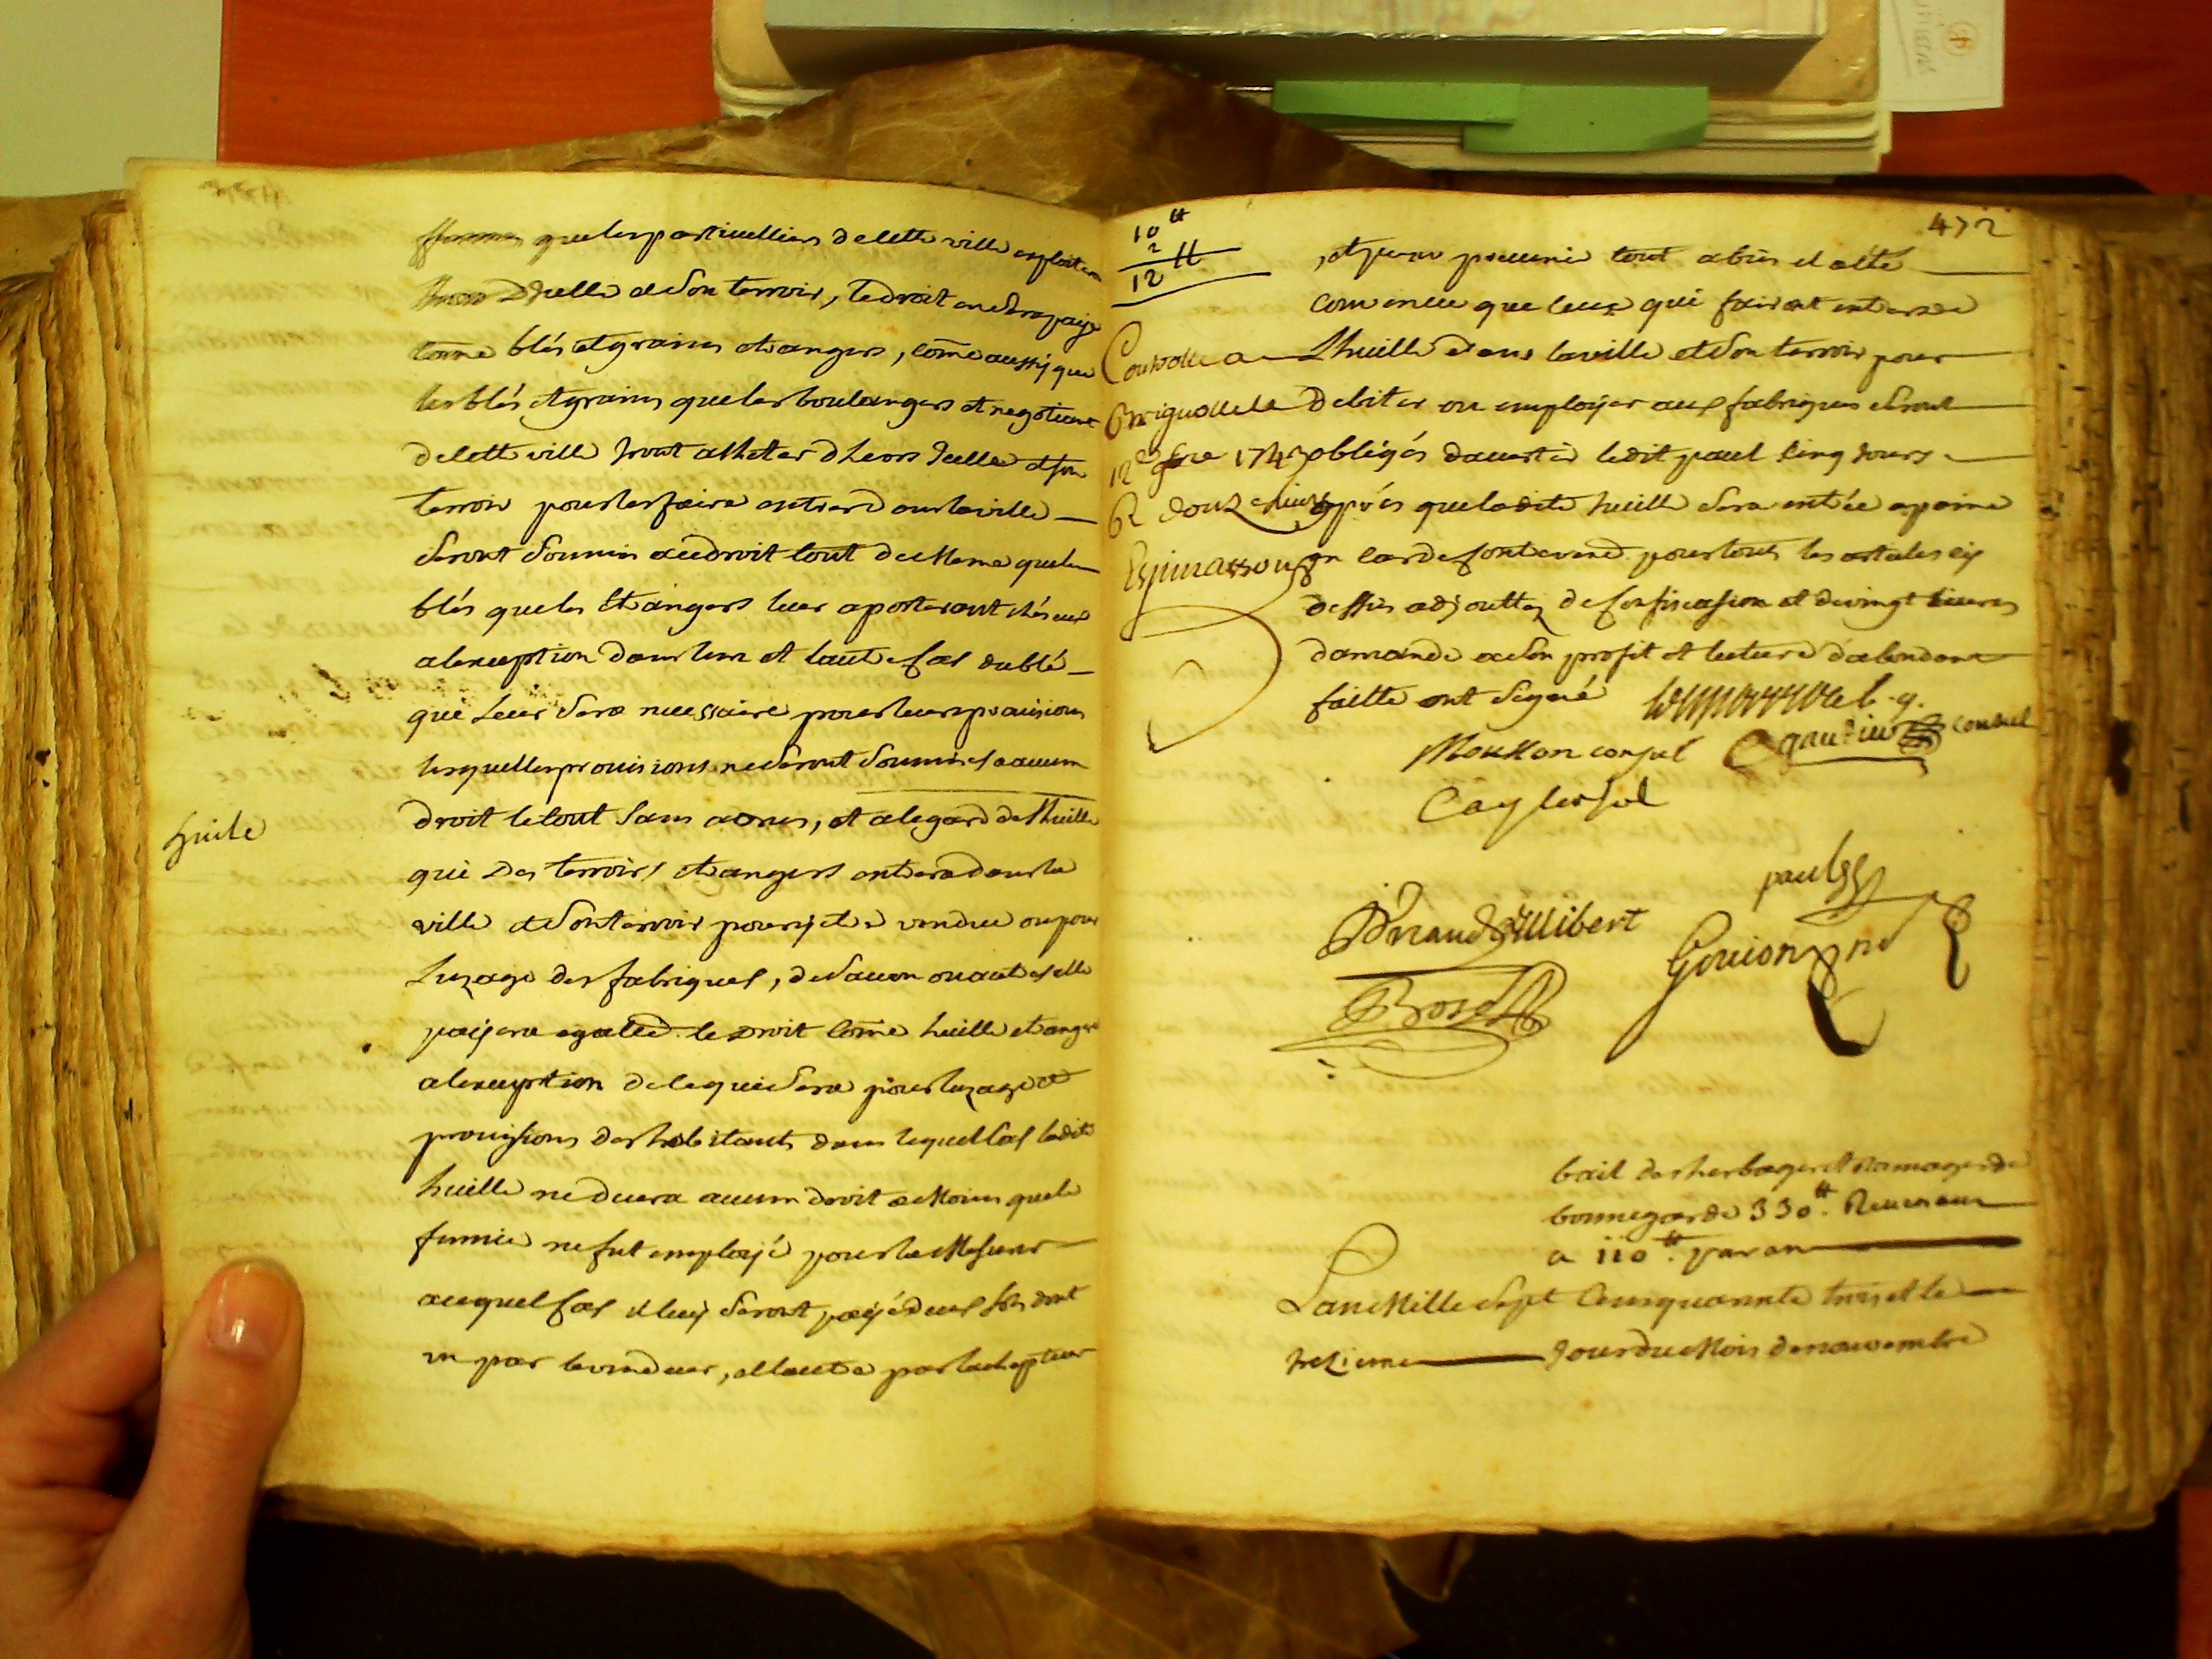 ffermes que les particulliers de cette ville exploitent
d'jcelle et son terroir, le droit en sera payé
come blés et grains etrangers, come aussy que
les blés et grains que les boulangers et negotiants
de cette ville jront achetter d'hors jcelle et son
terroir pour les faire entrer dans la ville
seront soumis au droit tout de meme que les
blés que les etrangers leur aporteront chés eux
a l'exception dans l'un et l'autre cas du blé
qui leur sera necessaire pour leurs provisions
lesquelles provisions ne seront soumises a aucun
huile
droit le tout sans abus, et a l'egard de l'huille
qui des terroirs etrangers entrera dans la
ville et son terroir pour y etre vendue ou pour
l'uzage des fabriques, de savon ou autes elle
payera egalled. le droit come huille etrangere
a l'exception de ce qui sera pour l'uzage et
provisions des habitants dans lequel cas ladite
huille ne devra aucun droit a moins que le
fermier ne fut employé pour la mesurer
auquel cas il luy seront payé deux sols dont
un par le vendeur, et l'autre par l'achepteur
472
10 tt
2 tt
12
Controllé a
Brignolle le
12e 9bre 1743
R douze livres
Espinasson
, et pour prevenir tout abus il a été
convenu que ceux qui fairont entrer de
l'huille dans la ville et son terroir pour
debiter ou employer aux fabriques seront
obligés d'avertir ledit paul cinq jours
après que ladite huille sera entrée a peine
en cas de contravend. pour tous les articles cy
dessus adjouttez de confiscasion et de vingt livres
d'amande a son profit et lecture d'abondant
faitte ont signé
Moutton consul gaudin consul
paul
Brianc Jllibert
Gouion
Bosc
bail des herbages et ramages de
bonnegarde 330 tt. Revenant
a 110 tt. par an
L'an mille sept cens quarante trois et le
trezieme jour du mois de novembre